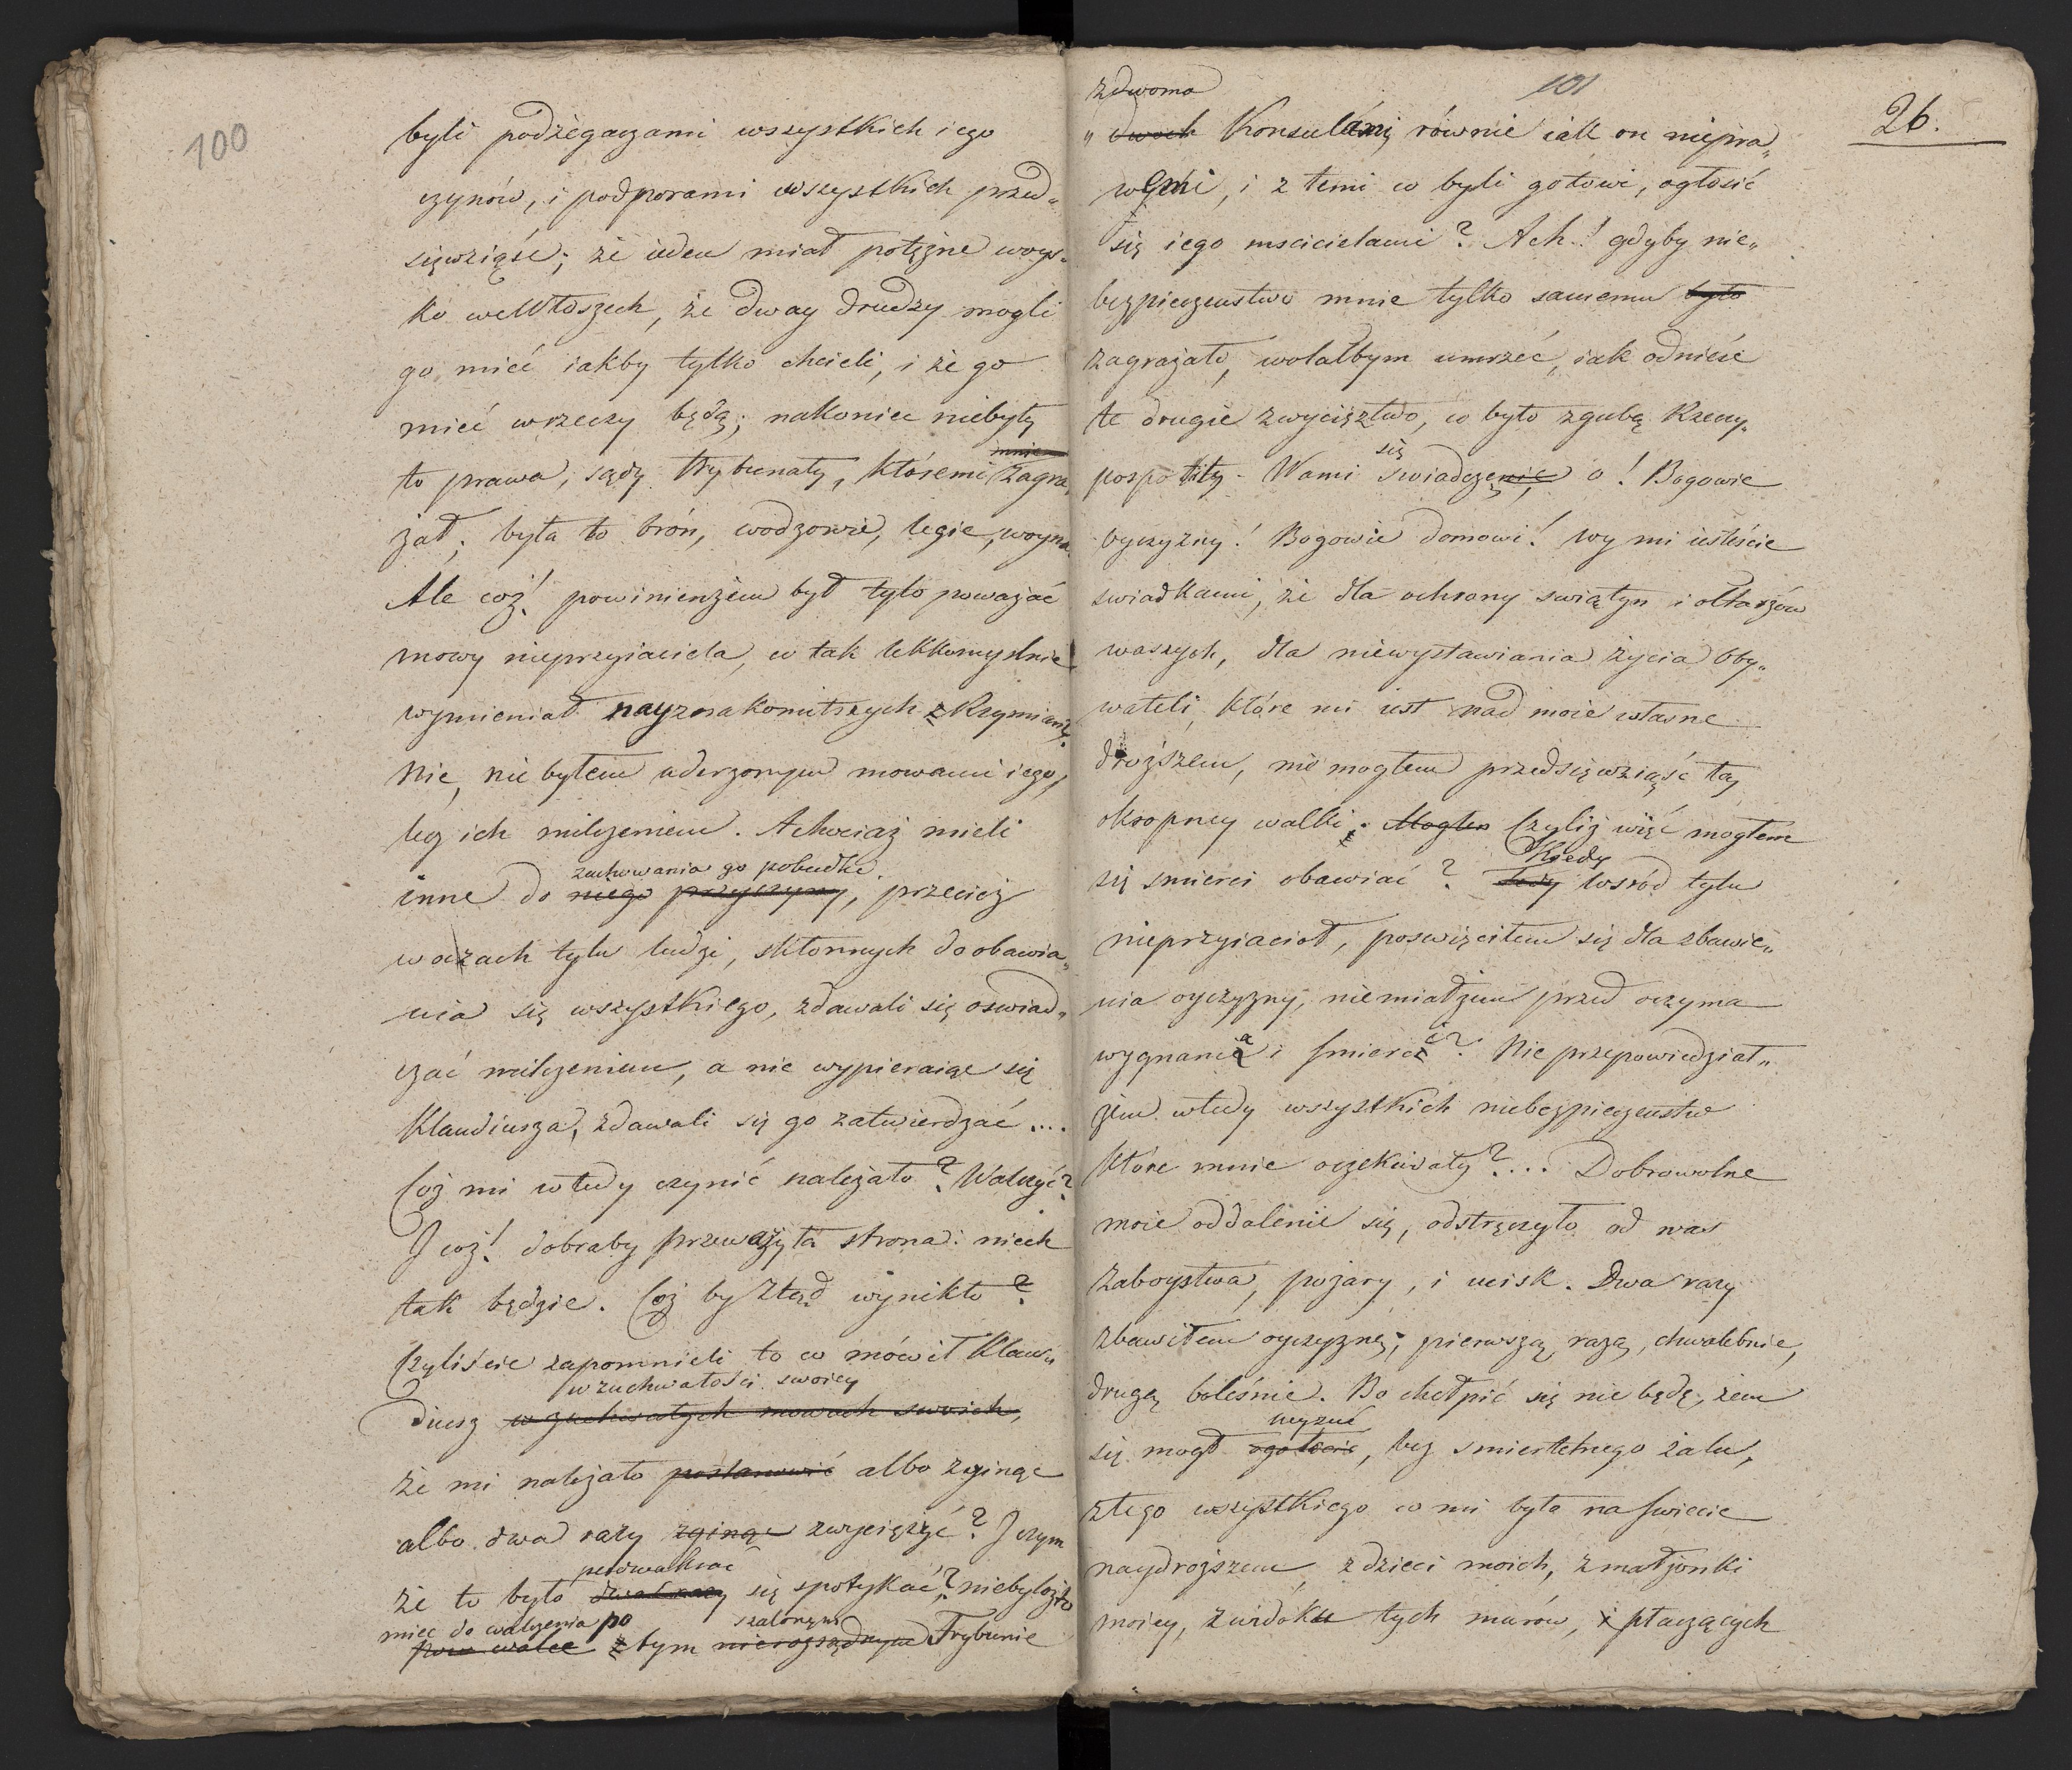 100
byli podżegaczami wszystkich iego
czynów, i podporami wszystkich przed„
sięwziąść; że ieden miał potężne woys„
ko weWłoszech, że dway drudzy mogli
go mieć iakby tylko chcieli, i że go
mieć wrzeczy będą; nakoniec niebyły
mnie
to prawa, sądy trybunały, któremi zagra„
żał; była to broń, wodzowie, legie, woyna.
Ale coż! powinienżem był tylo poważać
mowy nieprzyiaciela, co tak lekkomyslnie
wymieniał nayznakomitszych z Rzymian?
Nie, nie byłem uderzonym mowami iego,
lecz ich milczeniem. Achociaż mieli
zachowania go pobudki
inne do niego przyczyny, przecież
woczach tylu ludzi, skłonnych do obawia„
nia się wszystkiego, zdawali się oswiad„
czać milczeniem, a nie wypieraiąc się
Klaudiusza, zdawali się go zatwierdzać....
Coż mi wtedy czynić należało? Walczyć?
I coż! dobraby przeważyła strona: niech
tak będzie. Coż by ztąd wynikło?
Czyliście zapomnieli to co mówił Klau„
w zuchwałości swoiey
diusz w zuchwałych mowach swoich,
że mi należało postanowić albo zginąc
albo dwa razy zginąc zwyciężyć? I czym
powalkroć
że to było dwa razy się spotykać? niebyłożto
miec do walczenia po szalonym
po walce z tym nierozsądnym Trybunie

101
26.
zdwoma
„ dwoch Konsulámi równie iak on niepra„
wemi, i z temi co byli gotowi, ogłosić
się iego mscicielami? Ach! gdyby nie„
bezpieczenstwo mnie tylko samemu było
zagrażało, wolałbym umrzeć, iak odnieść
te drugie zwycięztwo, co było zgubą Rzeczy„
się
pospolity - Wami swiadczenie o! Bogowie
oyczyzny! Bogowie domowi! Wy mi iesteście
swiadkami, że dla ochrony swiątyn i ołtarzów
waszych, dla niewystawiania życia Oby„
wateli, które mi iest nad moie własne
droższem, nie mogłem przedsięwziąść tey
okropney walki. Mogłem Czyliż więc mogłem
Kiedy
się smierci obawiać? tedy wsród tylu
nieprzyiacioł, poswięciłem się dla zbawie„
nia oyczyzny, niemiałżem przed oczyma
wygnania i smierci? Nie przepowiedział„
żem wtedy wszystkich niebezpieczenstw
które mnie oczekiwały?... Dobrowolne
moie oddalenie się, odstręczyło od was
zaboystwa, pożary, i ucisk. Dwa razy
zbawiłem oyczyznę; pierwszą razą, chwalebnie,
drugą boleśnie. Bo chełpić się nie będę, żem
wyzuć
się mogł ogołocić, bez smiertelnego żalu,
ztego wszystkiego co mi było na swiecie
naydroższem, z dzieci moich, z małżonki
moiey, z widoku tych murów, i płaczących